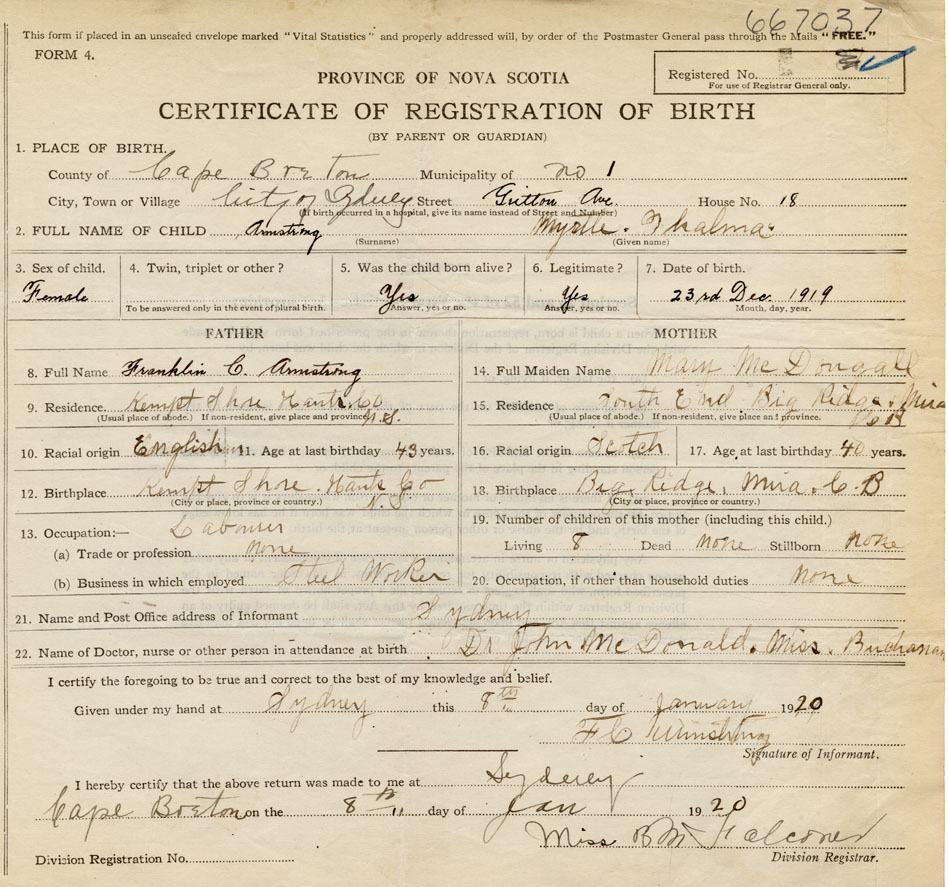 667037
This form if placed in an unsealed envelope marked "Vital Statistics" and properly addressed will, by order of the Postmaster General pass through the Mails "FREE."
FORM 4.
Registered No.
For use of Registrar General only.
PROVINCE OF NOVA SCOTIA
CERTIFICATE OF REGISTRATION OF BIRTH
(BY PARENT OR GUARDIAN)
1. PLACE OF BIRTH.
County of Cape Breton Municipality of no 1
City, Town or Village City of Sydney Street Gritton Ave. House No. 18
(If birth occurred in a hospital, give its name instead of Street and Number)
2. FULL NAME OF CHILD Armstrong Myrtle. Thalma
(Surname) (Given name)
3. Sex of child. 4. Twin, triplet or other? 5. Was the child born alive? 6. Legitimate? 7. Date of birth.
Female Yes Yes 23rd Dec. 1919
To be answered only in the event of plural birth. Answer, yes or no. Answer, yes or no. Month, day, year.
FATHER MOTHER
8. Full Name Franklin C. Armstrong
14. Full Maiden Name Mary McDougall
9. Residence. Kempt Shore Hants Co
(Usual place of abode.) If non-resident, give place and province. N.S.
15. Residence South End Big Ridge. Mira
(Usual place of abode.) If non-resident, give place and province.
10. Racial origin English 11. Age at last birthday 43 years.
16. Racial origin Scotch 17. Age at last birthday 40 years.
12. Birthplace Kempt Shore. Hants Co
(City or place, province or country.) N.S
18. Birthplace Big Ridge, Mira. C.B
(City or place, province or country.)
13. Occupation:— Labourer
(a) Trade or profession none
(b) Business in which employed Steel Worker
19. Number of children of this mother (including this child.)
Living 8 Dead none Stillborn none
20. Occupation, if other than household duties none
21. Name and Post Office address of Informant Sydney
22. Name of Doctor, nurse or other person in attendance at birth Dr John McDonald. Miss. Buchanan
I certify the foregoing to be true and correct to the best of my knowledge and belief.
Given under my hand at Sydney this 8th day of January 1920
F C Armstrong
Signature of Informant.
I hereby certify that the above return was made to me at Sydney
Cape Breton on the 8th day of Jan 1920
Miss B M Falconer
Division Registration No.
Division Registrar.